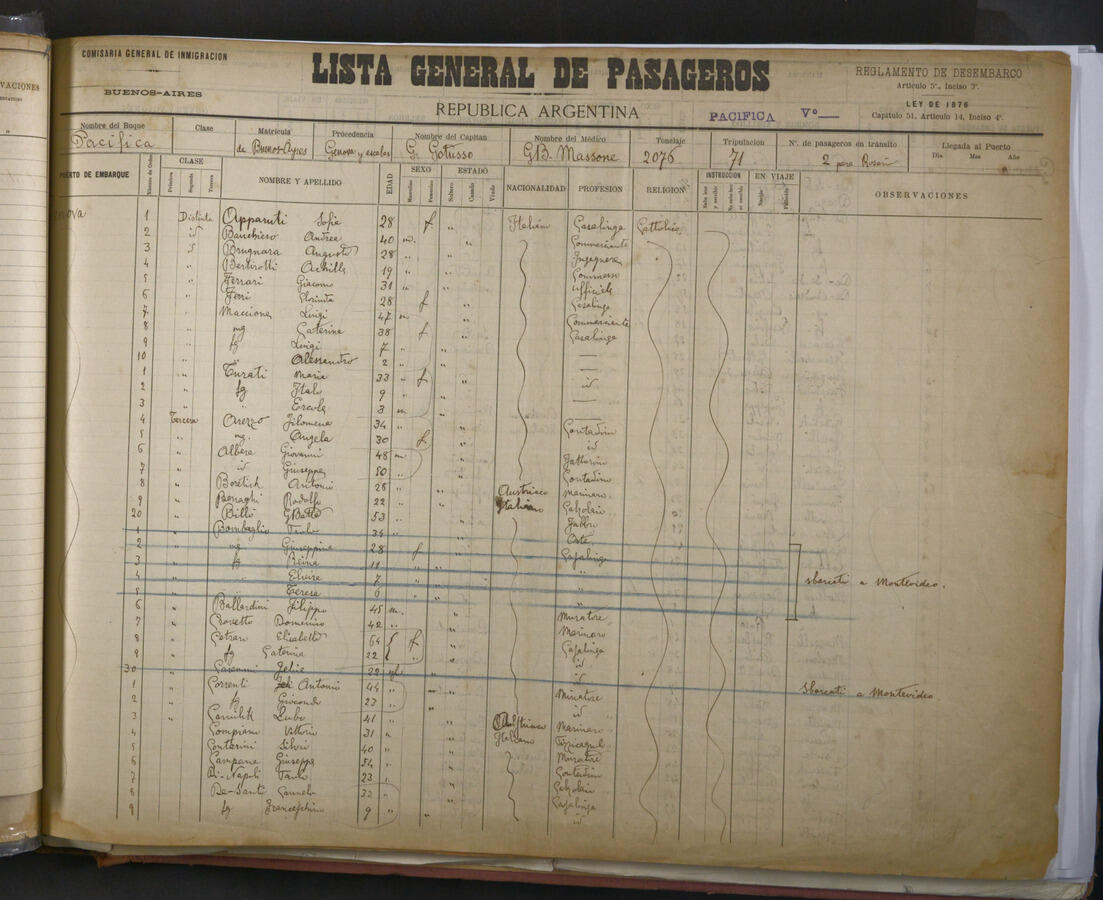 VACIONES
COMISARIA GENERAL DE INMIGRACION
BUENOS-AIRES
LISTA GENERAL DE PASAGEROS
REPUBLICA ARGENTINA
PACIFICA Vº
REGLAMENTO DE DESEMBARCO
Artículo 5º, Inciso 3º.
LEY DE 1876
Capítulo 51, Artículo 14, Inciso 4º.
Nombre del Buque Clase Matrícula Procedencia Nombre del Capitan Nombre del Médico Tonelaje Tripulacion Nº. de pasageros en tránsito Llegada al Puerto
Pacifica de Buenos-Ayres Genova y escalas G. Gotusso GB. Massone 2076 71 2 para Rosario Dia Mes Año
PUERTO DE EMBARQUE CLASE NOMBRE Y APELLIDO EDAD SEXO ESTADO NACIONALIDAD PROFESION RELIGION INSTRUCCION EN VIAJE OBSERVACIONES
Primera Segunda Tercera Masculino Femenino Soltero Casado Viudo
1 Distinta Apparuti Sofia 28 f " Italiano Casalinga Cattolica
2 id Banchiero Andrea 40 m. " Commerciante
3 Brugnara Augusto 28 " Ingegnere
4 " Bertirotti Achille 19 " Commesso
5 " Ferrari Giacomo 31 " Ufficiale
6 " Ferri 28 f " Casalinga
7 " Maccione Luigi 47 m " Commerciante
8 " mg Caterina 38 f " Casalinga
9 " fg Luigi 7 " —
10 " Alessandro 2 " —
1 " Turati Maria 33 f " id
2 " fg Italo 9 " —
3 " Ercole 3 m —
4 Tercera Arezzo Filomena 34 " Contadino
5 " mg. Angela 30 f " id
6 " Albera Giovanni 48 m " Fattorino
7 " id Giuseppe 50 " Contadino
8 " Antonio 28 " Austriaco Marinaro
9 " Benaghi Rodolfo 22 " Italiano
20 " Billò GBatta 53 " Fabbro
1 " Bombaglio Paolo 34 " Oste
2 " mg Giuseppina 28 f " Casalinga
3 " fg Reina 11 " "
4 " " Elvira 7 " " sbarcati a Montevideo.
5 " " Teresa 6 " "
6 " Ballardini Filippo 45 m. " Muratore
7 " Crovetto Domenico 42 " Marinaro
8 " Elisabetta 64 f " Casalinga
9 " fg Caterina 22 " id
30 " Felice 22 " id sbarcati a Montevideo
1 " Correnti Antonio 44 " Minatore
2 " fg Gioconda 23 " id
3 " Luba 41 " Austriaco Marinaro
4 " Vittorio 31 " Italiano
5 " Conterini Silvio 40 " Muratore
6 " Campana Giuseppe 54 " Contadino
7 " Di-Napoli Paolo 23 "
8 " De-Santi Carmela 32 " Casalinga
9 " fg Franceschina 9 " id